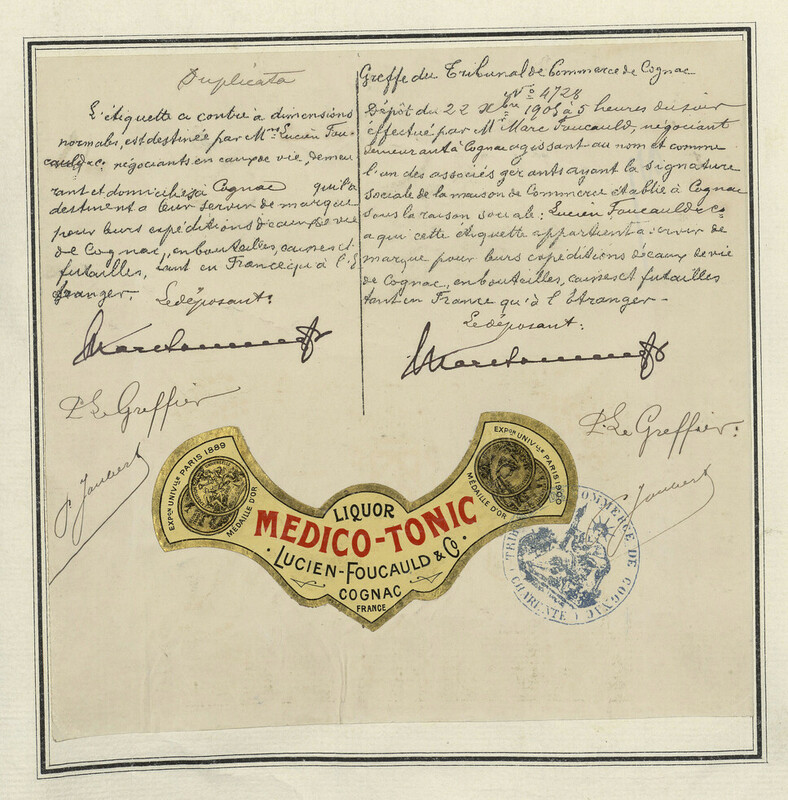 Duplicata
L'étiquette ci contre à dimensions
normales, est destinée par Mrs Lucien Fou-
cauld & Co négociants en eaux de vie, demeu-
rant et domiciliés à Cognac qu'ils
destinent à leur servir de marque
pour leurs expéditions d'eaux de vie
de Cognac, en bouteilles, caisses et
futailles, tant en France qu'à l'É
tranger.
Le déposant:
P. Le Greffier
P. Joubert
Greffe du Tribunal de Commerce de Cognac
No 4728
Dépôt du 22 Xbre 1905 à 5 heures du soir
effectué par Mr Marc Foucauld, négociant
demeurant à Cognac agissant au nom et comme
l'un des associés gérants ayant la signature
sociale de la maison de Commerce établie à Cognac
sous la raison sociale: Lucien Foucauld & Co
a qui cette étiquette appartient à servir de
marque pour leurs expéditions d'eaux de vie
de Cognac, en bouteilles, caisses et futailles
tant en France qu'à l'Étranger -
Le déposant:
P. Le Greffier:
P. Joubert
EXPON UNIVLLE PARIS 1889
MÉDAILLE D'OR
EXPON UNIVLLE PARIS 1900
MÉDAILLE D'OR
LIQUOR
MEDICO-TONIC
· LUCIEN-FOUCAULD & Co ·
COGNAC
FRANCE
TRIBUNAL DE COMMERCE DE COGNAC
(CHARENTE)